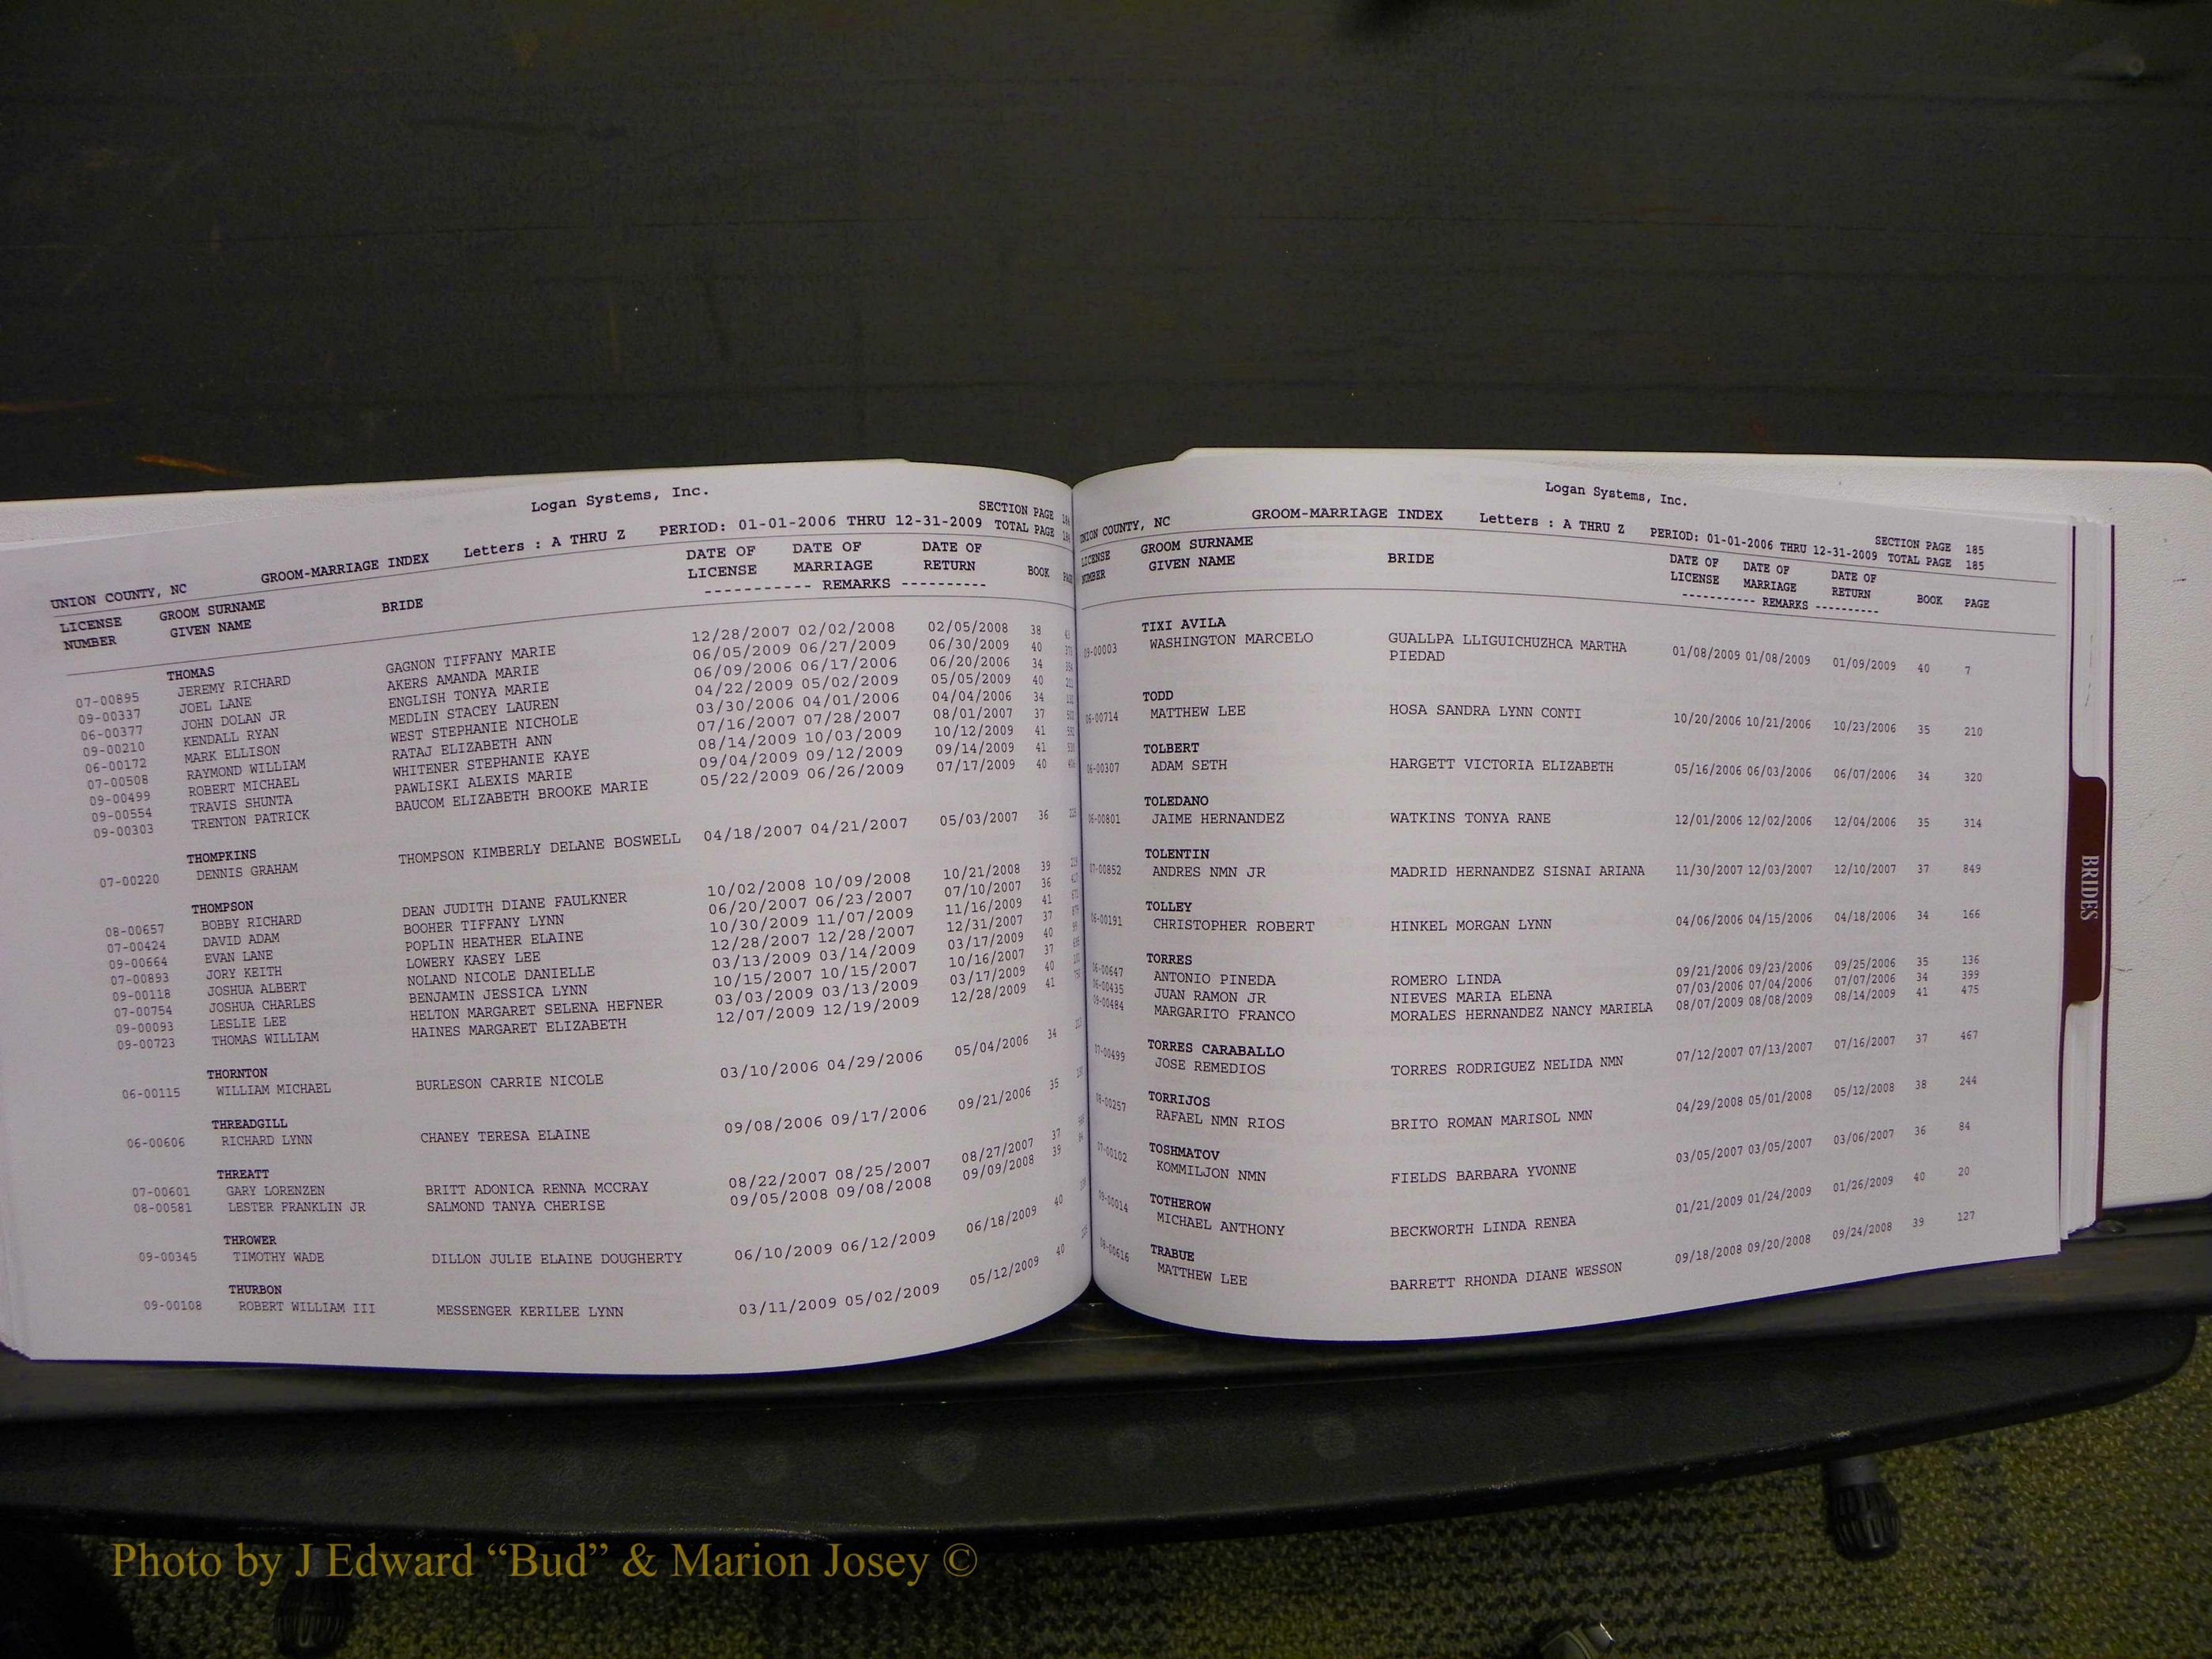 Logan Systems, Inc.
SECTION PAGE 184
UNION COUNTY, NC GROOM-MARRIAGE INDEX Letters : A THRU Z PERIOD: 01-01-2006 THRU 12-31-2009 TOTAL PAGE 184
LICENSE NUMBER GROOM SURNAME GIVEN NAME BRIDE DATE OF LICENSE DATE OF MARRIAGE DATE OF RETURN BOOK
----------- REMARKS ----------
THOMAS
07-00895 JEREMY RICHARD GAGNON TIFFANY MARIE 12/28/2007 02/02/2008 02/05/2008 38
09-00337 JOEL LANE AKERS AMANDA MARIE 06/05/2009 06/27/2009 06/30/2009 40
06-00377 JOHN DOLAN JR ENGLISH TONYA MARIE 06/09/2006 06/17/2006 06/20/2006 34
09-00210 KENDALL RYAN MEDLIN STACEY LAUREN 04/22/2009 05/02/2009 05/05/2009 40
06-00172 MARK ELLISON WEST STEPHANIE NICHOLE 03/30/2006 04/01/2006 04/04/2006 34
07-00508 RAYMOND WILLIAM RATAJ ELIZABETH ANN 07/16/2007 07/28/2007 08/01/2007 37
09-00499 ROBERT MICHAEL WHITENER STEPHANIE KAYE 08/14/2009 10/03/2009 10/12/2009 41
09-00554 TRAVIS SHUNTA PAWLISKI ALEXIS MARIE 09/04/2009 09/12/2009 09/14/2009 41
09-00303 TRENTON PATRICK BAUCOM ELIZABETH BROOKE MARIE 05/22/2009 06/26/2009 07/17/2009 40
THOMPKINS
07-00220 DENNIS GRAHAM THOMPSON KIMBERLY DELANE BOSWELL 04/18/2007 04/21/2007 05/03/2007 36
THOMPSON
08-00657 BOBBY RICHARD DEAN JUDITH DIANE FAULKNER 10/02/2008 10/09/2008 10/21/2008 39
07-00424 DAVID ADAM BOOHER TIFFANY LYNN 06/20/2007 06/23/2007 07/10/2007 36
09-00664 EVAN LANE POPLIN HEATHER ELAINE 10/30/2009 11/07/2009 11/16/2009 41
07-00893 JORY KEITH LOWERY KASEY LEE 12/28/2007 12/28/2007 12/31/2007 37
09-00118 JOSHUA ALBERT NOLAND NICOLE DANIELLE 03/13/2009 03/14/2009 03/17/2009 40
07-00754 JOSHUA CHARLES BENJAMIN JESSICA LYNN 10/15/2007 10/15/2007 10/16/2007 37
09-00093 LESLIE LEE HELTON MARGARET SELENA HEFNER 03/03/2009 03/13/2009 03/17/2009 40
09-00723 THOMAS WILLIAM HAINES MARGARET ELIZABETH 12/07/2009 12/19/2009 12/28/2009 41
THORNTON
06-00115 WILLIAM MICHAEL BURLESON CARRIE NICOLE 03/10/2006 04/29/2006 05/04/2006 34
THREADGILL
06-00606 RICHARD LYNN CHANEY TERESA ELAINE 09/08/2006 09/17/2006 09/21/2006 35
THREATT
07-00601 GARY LORENZEN BRITT ADONICA RENNA MCCRAY 08/22/2007 08/25/2007 08/27/2007 37
08-00581 LESTER FRANKLIN JR SALMOND TANYA CHERISE 09/05/2008 09/08/2008 09/09/2008 39
THROWER
09-00345 TIMOTHY WADE DILLON JULIE ELAINE DOUGHERTY 06/10/2009 06/12/2009 06/18/2009 40
THURBON
09-00108 ROBERT WILLIAM III MESSENGER KERILEE LYNN 03/11/2009 05/02/2009 05/12/2009 40
Logan Systems, Inc.
SECTION PAGE 185
UNION COUNTY, NC GROOM-MARRIAGE INDEX Letters : A THRU Z PERIOD: 01-01-2006 THRU 12-31-2009 TOTAL PAGE 185
LICENSE NUMBER GROOM SURNAME GIVEN NAME BRIDE DATE OF LICENSE DATE OF MARRIAGE DATE OF RETURN BOOK PAGE
----------- REMARKS ----------
TIXI AVILA
09-00003 WASHINGTON MARCELO GUALLPA LLIGUICHUZHCA MARTHA 01/08/2009 01/08/2009 01/09/2009 40 7
PIEDAD
TODD
06-00714 MATTHEW LEE HOSA SANDRA LYNN CONTI 10/20/2006 10/21/2006 10/23/2006 35 210
TOLBERT
06-00307 ADAM SETH HARGETT VICTORIA ELIZABETH 05/16/2006 06/03/2006 06/07/2006 34 320
TOLEDANO
06-00801 JAIME HERNANDEZ WATKINS TONYA RANE 12/01/2006 12/02/2006 12/04/2006 35 314
TOLENTIN
07-00852 ANDRES NMN JR MADRID HERNANDEZ SISNAI ARIANA 11/30/2007 12/03/2007 12/10/2007 37 849
TOLLEY
06-00191 CHRISTOPHER ROBERT HINKEL MORGAN LYNN 04/06/2006 04/15/2006 04/18/2006 34 166
TORRES
06-00647 ANTONIO PINEDA ROMERO LINDA 09/21/2006 09/23/2006 09/25/2006 35 136
06-00435 JUAN RAMON JR NIEVES MARIA ELENA 07/03/2006 07/04/2006 07/07/2006 34 399
09-00484 MARGARITO FRANCO MORALES HERNANDEZ NANCY MARIELA 08/07/2009 08/08/2009 08/14/2009 41 475
TORRES CARABALLO
07-00499 JOSE REMEDIOS TORRES RODRIGUEZ NELIDA NMN 07/12/2007 07/13/2007 07/16/2007 37 467
TORRIJOS
08-00257 RAFAEL NMN RIOS BRITO ROMAN MARISOL NMN 04/29/2008 05/01/2008 05/12/2008 38 244
TOSHMATOV
07-00102 KOMMILJON NMN FIELDS BARBARA YVONNE 03/05/2007 03/05/2007 03/06/2007 36 84
TOTHEROW
09-00014 MICHAEL ANTHONY BECKWORTH LINDA RENEA 01/21/2009 01/24/2009 01/26/2009 40 20
TRABUE
08-00616 MATTHEW LEE BARRETT RHONDA DIANE WESSON 09/18/2008 09/20/2008 09/24/2008 39 127
BRIDES
Photo by J Edward “Bud” & Marion Josey ©